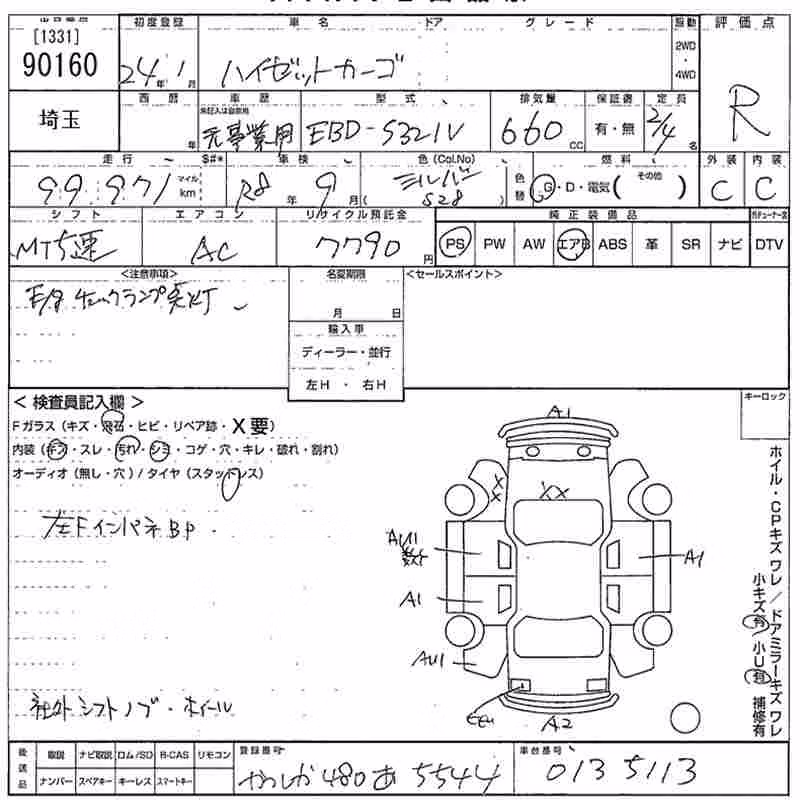 出品番号 初度登録 車名 ドア グレード 駆動 評価点
[1331]
90160
24年1月 ハイゼットカーゴ 2WD・4WD R
埼玉
西暦 車歴 型式 排気量 保証書 定員
年 元事業用 EBD-S321V 660cc 有・無 2/4名
走行 $#* 車検 色(Col.No) 色替 燃料 その他 外装 内装
99,971 マイル km R8年9月 シルバー S28 G・D・電気( ) C C
シフト エアコン リサイクル預託金 純正装備品
MT5速 AC 7790円 PS PW AW エアB ABS 革 SR ナビ DTV
<注意事項> 名変期限 <セールスポイント>
E/g チェックランプ点灯
月 日
輸入車
ディーラー・並行
左H・右H
<検査員記入欄> キーロック
Fガラス(キズ・飛石・ヒビ・リペア跡・X要)
内装(キズ・スレ・汚れ・シミ・コゲ・穴・キレ・破れ・割れ)
オーディオ(無し・穴)/タイヤ(スタッドレス)
左FインパネBP
A1
XX
XX
AU1 数ヶ所
A1
A1
AU1
A2
ホイル・CPキズ ワレ/ドアミラーキズ ワレ
小キズ有/小U有 補修有
社外シフトノブ・ホイール
後送品 取説 ナビ取説 ロム/SD B-CAS リモコン
ナンバー スペアキー キーレス スマートキー
登録番号 車台番号
480あ5544 0135113